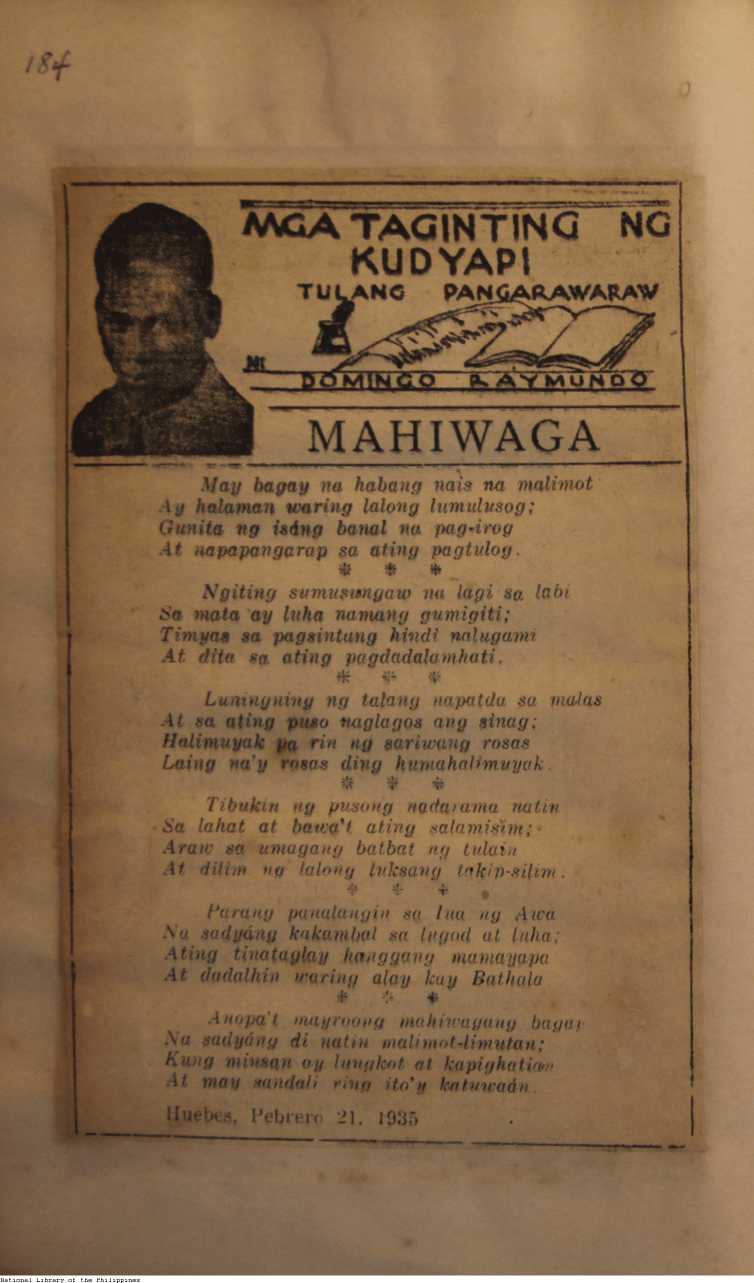 184
MGA TAGINTING NG
KUDYAPI
TULANG PANGARAWARAW
NI
DOMINGO RAYMUNDO
MAHIWAGA
May bagay na habang nais na malimot
Ay halaman waring lalong lumulusog;
Gunita ng isáng banal na pag-irog
At napapangarap sa ating pagtulog.
* * *
Ngiting sumusungaw na lagi sa labi
Sa mata ay luha namang gumigiti;
Timyas sa pagsintang hindi nalugami
At dita sa ating pagdadalamhati.
* * *
Luningning ng talang napatda sa malas
At sa ating puso naglagos ang sinag;
Halimuyak pa rin ng sariwang rosas
Laing na'y rosas ding humahalimuyak.
* * *
Tibukin ng pusong nadarama natin
Sa lahat at bawa't ating salamisim;
Araw sa umagang batbat ng tulain
At dilim ng lalong luksang takip-silim.
* * *
Parang panalangin sa Ina ng Awa
Na sadyáng kakambal sa lugod at luha;
Ating tinataglay hanggang mamayapa
At dadalhin waring alay kay Bathala
* * *
Anopa't mayroong mahiwagang bagay
Na sadyáng di natin malimot-limutan;
Kung minsan ay lungkot at kapighatian
At may sandali ring ito'y katuwaán.
Huebes, Pebrero 21, 1935
National Library of the Philippines